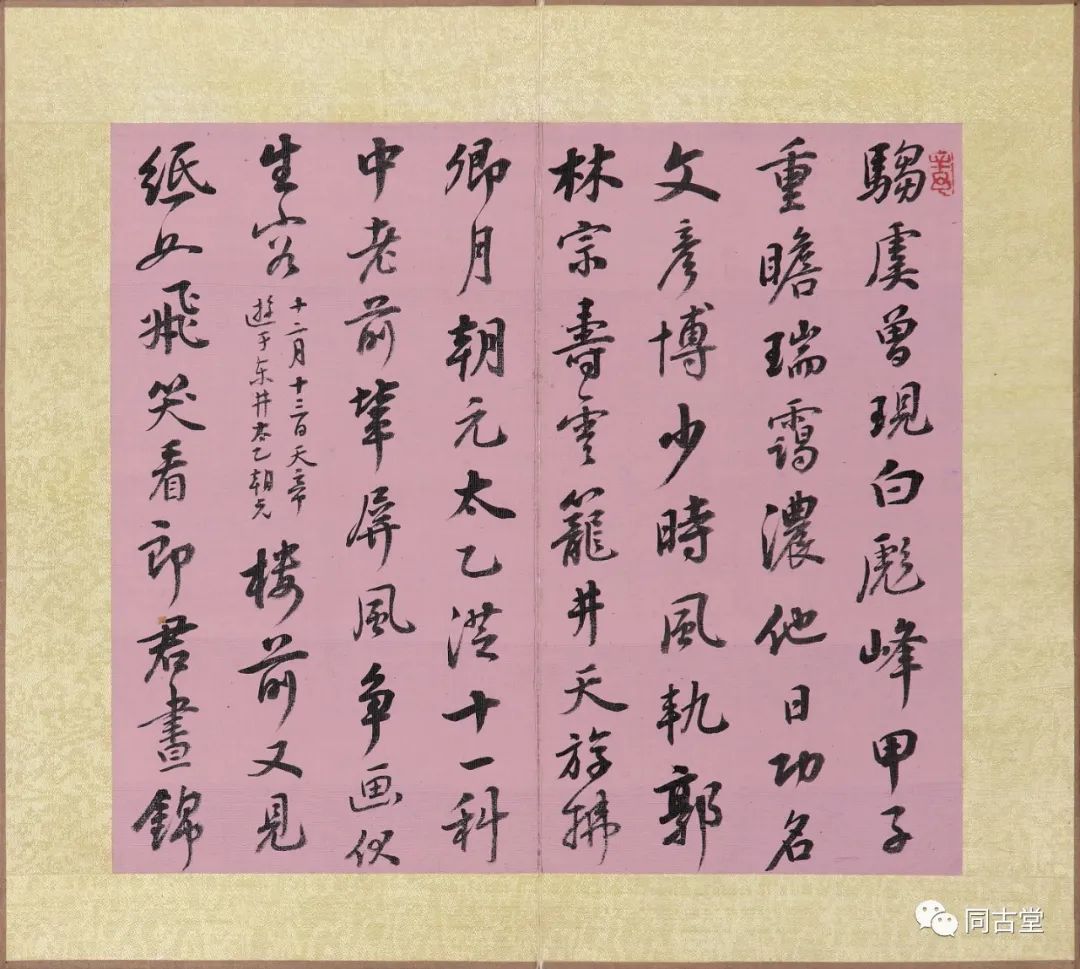 騶虞曾現白彪峰甲子
重瞻瑞靄濃他日功名
文彥博少時風執郭
林宗壽雲籠井天旂拂
卿月朝元太乙從十一科
中老前輩屏風争画伏
生容
十二月十三日天帝
遊于東井太乙朝元
樓前又見
紙如飛笑看郎君晝錦
同古堂